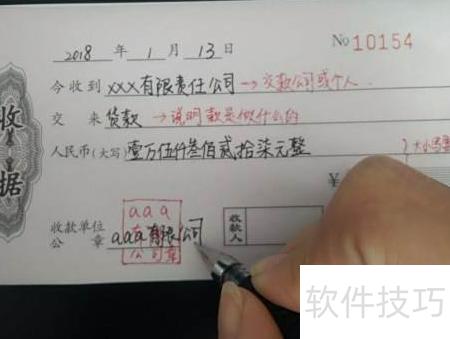 收据
2018 年 1 月 13 日 No 10154
今收到 xxx有限责任公司 → 交款公司或个人
交 来 货款 → 说明款是做什么的
人民币(大写) 壹万伍仟叁佰贰拾柒元整 大小写
¥
收款单位 aaa 收款人
公 章 aaa有限公司
公司章
软件技巧